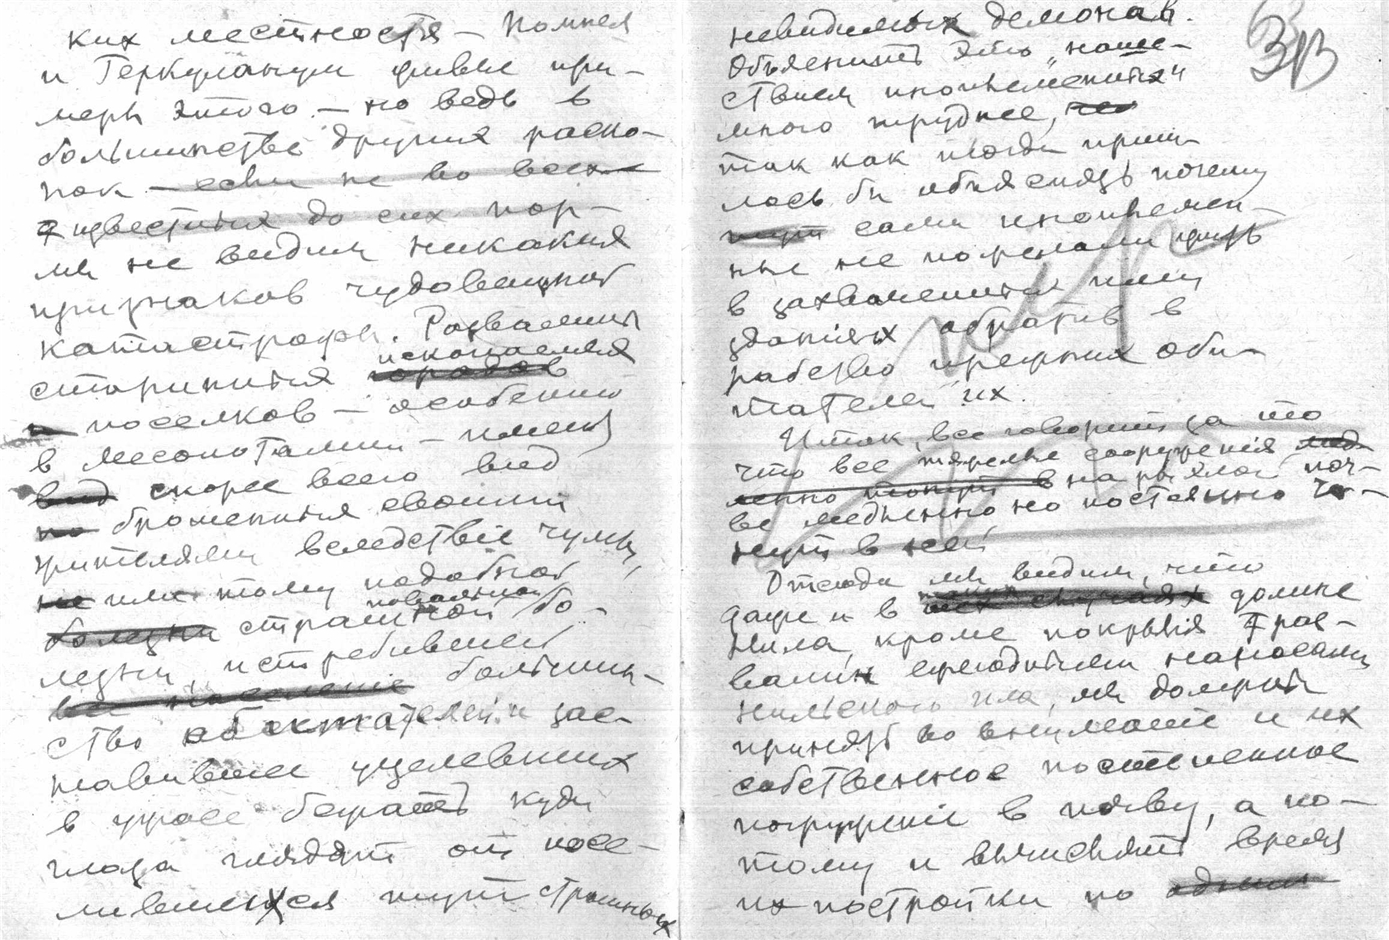 ких местностя – Помпея
и Геркуланум живые при-
меры этого – но ведь в
большинстве других раско-
пок – если не во всех
известных до сих пор –
мы не видим никаких
признаков чудовещной
катастрофы. Развалины
старинных ископаемых
городов
поселков – особенно
в Месопотамии – имеют
вид скорее всего вид
по брошенных своими
жителями вследствие чумы,
не или тому подобной
повальной
болезни страшной бо-
лезни, истребившей
все население большин-
ство обитателей и зас-
тавившей уцелевших
в ужасе бежать куда
глаза глядят от посе-
лившихся тут страшных
невидимых демонов.
Объяснить это "наше-
ствием иноплеменных"
много труднее, чем
так как тогда приш-
лось бы объяснять почему
тут сами иноплемен-
ные не пожелали жить
в захваченных ими
зданиях обратив в
рабство прежних оби-
тателей их.
Итак, все говорит за то
что все тяжелые сооружения мед-
ленно тонут в на рыхлой поч-
ве медленно но постоянно то-
нут в ней
Отсюда мы видим, что
даже и в всех случаях долине
Нила, кроме покрытия
ежегодными наносами
нильского ила, мы должны
принять во внимание и их
собственное постепенное
погружение в почву, а по-
тому и вычислять время
их постройки по одним